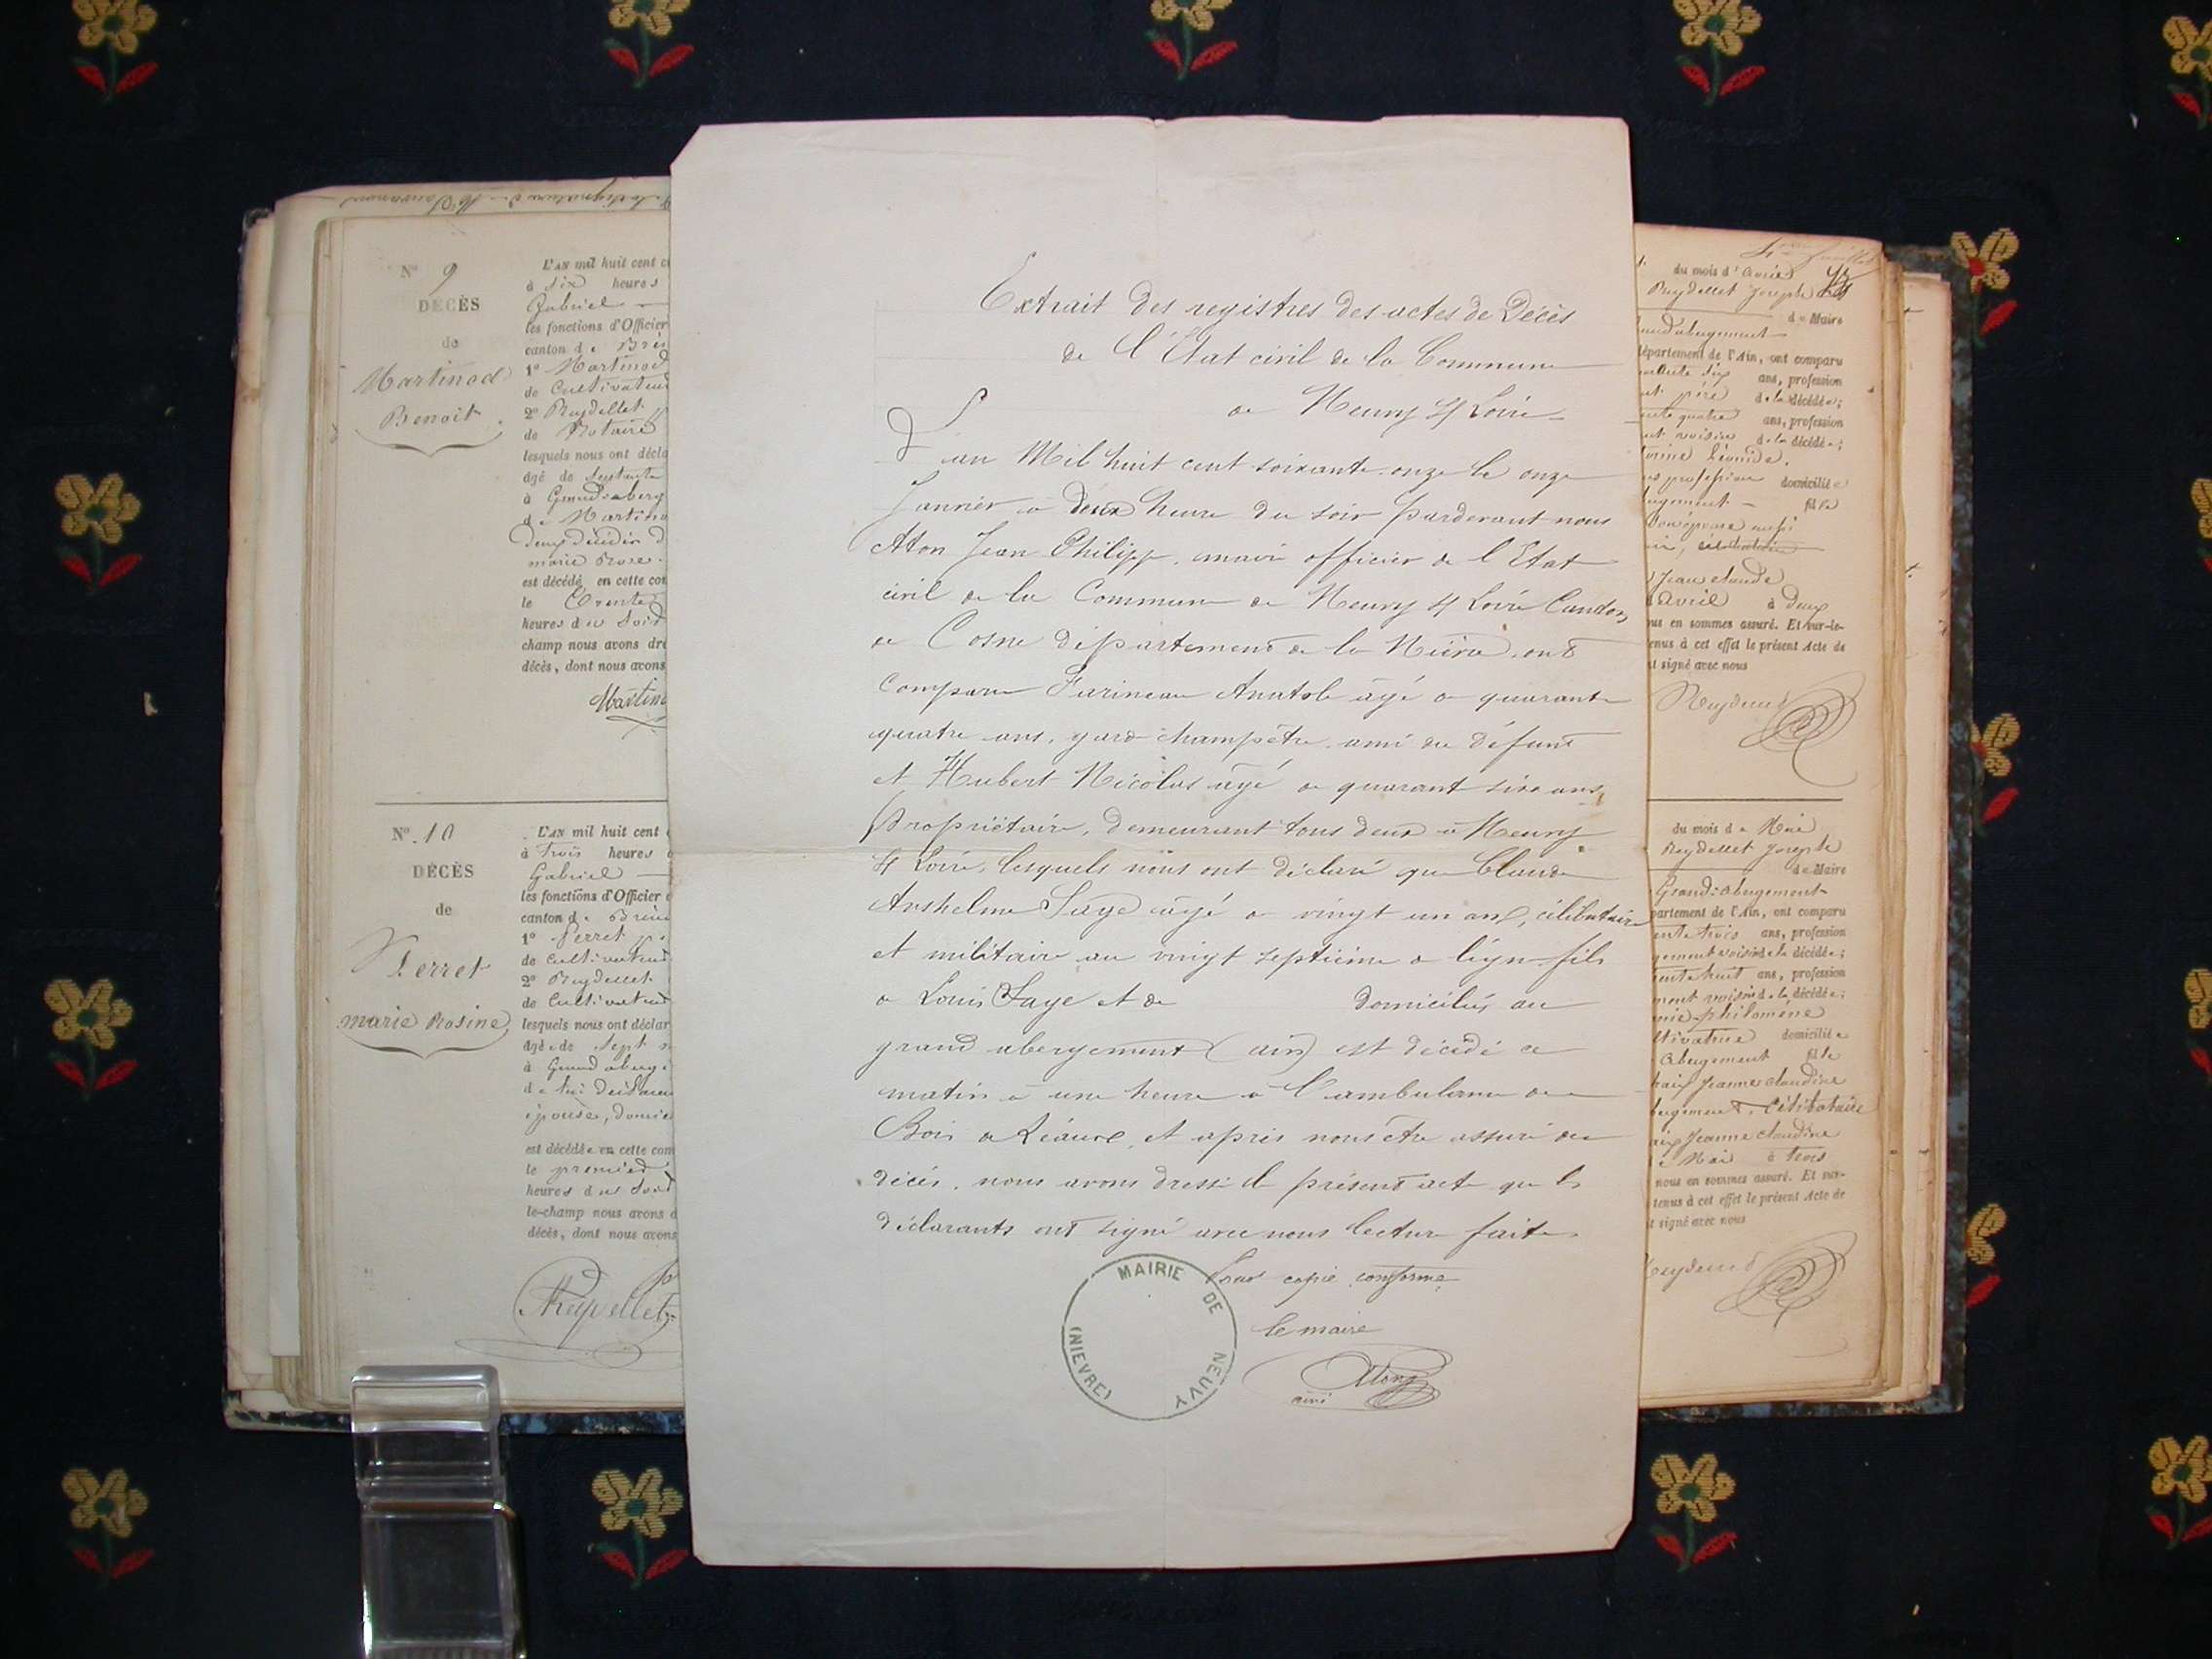 Extrait des registres des actes de Décès
de l'État civil de la Commune
de Neuvy s/ Loire
L'an Mil huit cent soixante-onze le onze
Janvier à deux heure du soir pardevant nous
Aton Jean Philippe, maire officier de l'Etat
civil de la Commune de Neuvy s/ Loire Canton
de Cosne département de la Nièvre, ont
comparu Farineau Anatole âgé de quarante
quatre ans, garde champêtre, ami du défunt
et Hubert Nicolas âgé de quarante six ans
propriétaire, demeurant tous deux à Neuvy
s/ Loire, lesquels nous ont déclaré que Claude
Anshelme Saye âgé de vingt un ans, célibataire
et militaire au vingt septième de ligne fils
de Louis Saye et de domiciliés au
grand abergement (ain) est décédé ce
matin à une heure à l'ambulance du
Bois de et après nous être assuré du
décès, nous avons dressé le présent acte que les
déclarants ont signé avec nous lecture faite.
Pour copie conforme
le maire
Aton
ainé
MAIRIE DE NEUVY
(NIEVRE)
N° 9
DÉCÈS
de
Martinod
Benoit
L'AN mil huit cent
à six heures
Gabriel
les fonctions d'Officier
canton de
1° Martinod
de Cultivateur
2° Reydellet
de Notaire
lesquels nous ont
âgé de
à
de
marie
est décédé en cette
le trente
heures du soir
champ nous avons
décès, dont nous avons
N° 10
DÉCÈS
de
Perret
marie Rosine
L'AN mil huit cent
à trois heures
Gabriel
les fonctions d'Officier
canton de
1° Perret
de cultivateur
2° Reydellet
de cultivateur
lesquels nous ont
âgé de sept
à Grand
épouse,
est décédée en cette
le premier
heures du soir
le-champ nous avons
décès, dont nous avons
du mois d'avril
Reydellet Joseph
de Maire
département de l'Ain, ont comparu
ans, profession
père de la décédée;
quatre ans, profession
voisin de la décédée;
Léonide.
profession domiciliée
fille
Jean claude
avril à deux
nous en sommes assuré. Et sur-le-
tenus à cet effet le présent Acte de
signé avec nous
du mois de Mai
Reydellet Joseph
de Maire
Grand-abergement
département de l'Ain, ont comparu
trois ans, profession
voisin de la décédée;
huit ans, profession
voisin de la décédée;
philomène
domiciliée
fille
Jeanne claudine
célibataire
Jeanne claudine
de Mai à trois
nous en sommes assuré. Et sur-
tenus à cet effet le présent Acte de
signé avec nous